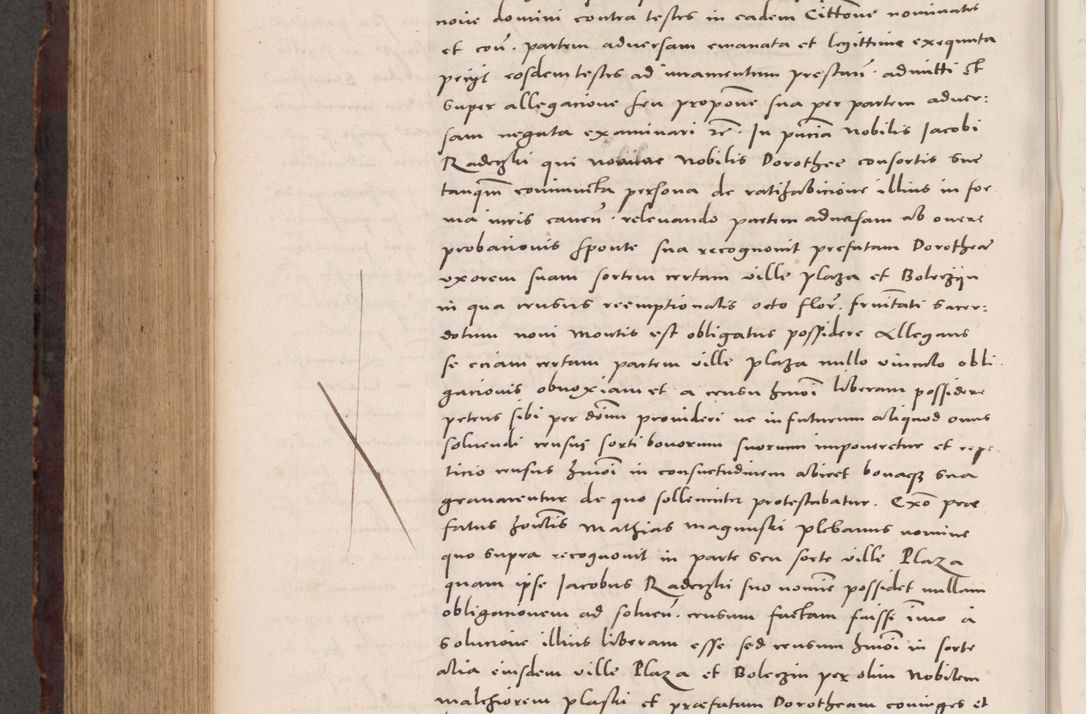 noie domini contra testes in eadem Cittōne nominatis
et coū. partem adversam emanata et legittime exequuta
petijt eosdem testes ad iuramentum prestan̄. admitti et
super allegacione seu propone sua per partem adver:
sam negata examinari rē. In pn̄cia Nobilis Jacobi
Raderzki qui nomine Nobilis Dorothee consortis sue
tanqm̄ coniuncta persona de ratihabicione illius in for
ma iuris caven̄. relevando partem adversam ab onere
probationis sponte sua recognovit prefatam Dorotheam
uxorem suam sortem certam ville Plaza et Boleczijn
in qua census reemptionalis octo flor̄. fr̄nitati sacer:
dotum novi Montis est obligatus possidere Allegans
se eciam certam partem ville plaza nullo vinculo obli
gacionis obnoxiam et a censu hm̄oi liberam possidere
petens sibi per dōm provideri ne in futurum aliquod onus
solvendi census sorti bonorum suorum imponeretur et
ticio census hm̄oi in consuetudinem abiret bonaq̨ sua
gravarentur de quo sollenniter protestabatur. Exō pre
fatus honlīs Mathias Magnuski plebanus nomine
quo supra recognovit in parte seu sorte ville Plaza
quam ipse Jacobus Raderzki suo nomie possidet nullam
obligationem ad solven̄. censum factam fuisse īmo a
solucione illius liberam esse sed censum hm̄oi in sorte
alia eiusdem ville Plaza et Boleczin per olim Nobilem
malchiorem plaski et præfatam Dorotheam coniuges et